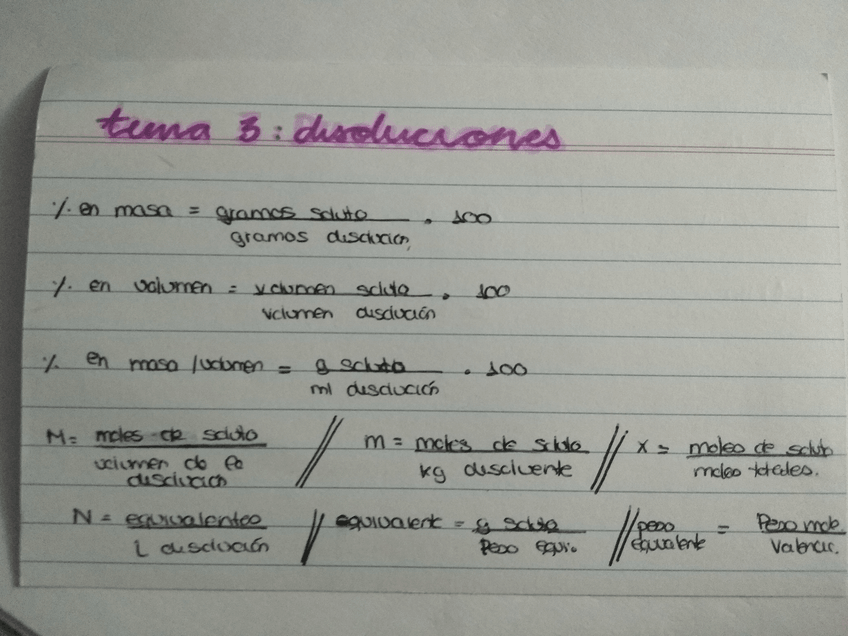 tema 3: disoluciones
% en masa = gramos soluto / gramos disolución · 100
% en volumen = volumen soluto / volumen disolución · 100
% en masa/volumen = g soluto / ml disolución · 100
M = moles de soluto / volumen de la disolución // m = moles de soluto / kg disolvente // x = moles de soluto / moles totales.
N = equivalentes / L disolución // equivalente = g soluto / Peso equiv. // peso equivalente = Peso mole / Valencia.